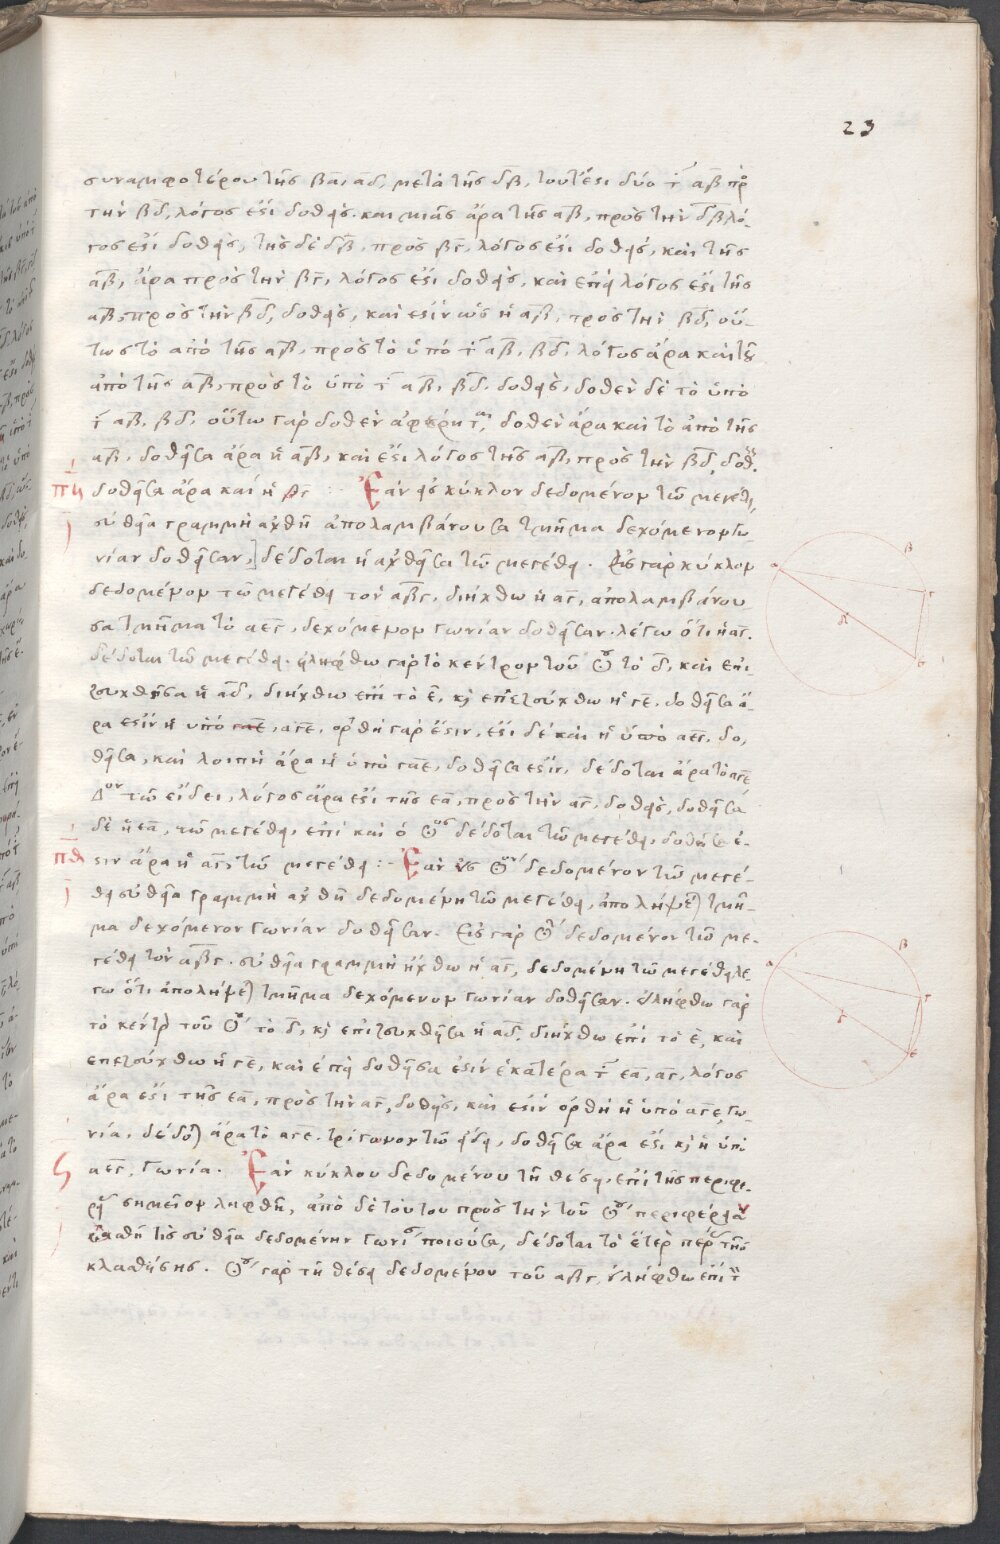 23
συναμφοτέρου τῆς βα, αδ, μετὰ τῆς δβ, τουτέστι δύο τ̃ αβ πρ̀
τὴν βδ, λόγος ἐστὶ δοθείς. καὶ μιᾶς ἄρα τῆς αβ, πρὸς τὴν δβ λό-
γος ἐστὶ δοθείς, τῆς δὲ δβ, πρὸς βγ, λόγος ἐστὶ δοθείς, καὶ τῆς
αβ, ἄρα πρὸς τὴν βγ, λόγος ἐστὶ δοθείς, καὶ ἐπεὶ λόγος ἐστὶ τῆς
αβ, πρὸς τὴν βδ, δοθείς, καὶ ἐστὶν ὡς ἡ αβ, πρὸς τὴν βδ, οὕ-
τως τὸ ἀπὸ τῆς αβ, πρὸς τὸ ὑπὸ τ̃ αβ, βδ, λόγος ἄρα καὶ τοῦ
ἀπὸ τῆς αβ, πρὸς τὸ ὑπὸ τ̃ αβ, βδ, δοθείς, δοθὲν δὲ τὸ ὑπὸ
τ̃ αβ, βδ, οὕτω γὰρ δοθὲν δοθὲν ἄρα καὶ τὸ ἀπὸ τῆς
αβ, δοθεῖσα ἄρα ἡ αβ, καὶ ἐστὶ λόγος τῆς αβ, πρὸς τὴν βδ, δοθεὶς.
πη δοθεῖσα ἄρα καὶ ἡ βγ :- Ἐὰν εἰς κύκλον δεδομένον τῶ μεγέθει,
εὐθεῖα γραμμὴ ἀχθῆ ἀπολαμβάνουσα τμῆμα δεχόμενον γω-
νίαν δοθεῖσαν,] δέδοται ἡ ἀχθεῖσα τῶ μεγέθει. Εἰς γὰρ κύκλον
δεδομένον τῶ μεγέθει τὸν αβγ, διήχθω ἡ αγ, ἀπολαμβάνου-
σα τμῆμα τὸ αεγ, δεχόμενον γωνίαν δοθεῖσαν. λέγω ὅτι ἡ αγ.
δέδοται τῶ μεγέθει. εἰλήφθω γὰρ τὸ κέντρον τοῦ τὸ δ, καὶ ἐπι-
ζευχθεῖσα ἡ αδ, διήχθω ἐπὶ τὸ ε, κ ἐπεζεύχθω ἡ γε, δοθεῖσα ἄ-
ρα ἐστὶν ἡ ὑπὸ αγε, ὀρθὴ γάρ ἐστιν, ἐστὶ δὲ καὶ ἡ ὑπὸ αεγ, δο,
θεῖσα, καὶ λοιπὴ ἄρα ἡ ὑπὸ γαε, δοθεῖσα ἐστίν, δέδοται ἄρα τὸ αγε
Δον τῶ εἴδει, λόγος ἄρα ἐστὶ τῆς εα, πρὸς τὴν αγ, δοθείς, δοθεῖσα
δὲ ἡ εα, τῶ μεγέθει, ἐπεὶ καὶ ὁ δέδοται τῶ μεγέθει, δοθεῖσα ἐ-
πθ στιν ἄρα ἡ αγ, τῶ μεγέθει :- Ἐὰν εἰς δεδομένον τῶ μεγέ-
θει εὐθεῖα γραμμὴ ἀχθῆ δεδομένη τῶ μεγέθει, ἀπολήψε) τμῆ-
μα δεχόμενον γωνίαν δοθεῖσαν. Εἰς γὰρ δεδομένον τῶ με-
γέθει τὸν αβγ. εὐθεῖα γραμμὴ ἤχθω ἡ αγ, δεδομένη τῶ μεγέθει λέ-
γω ὅτι ἀπολήψε) τμῆμα δεχόμενον γωνίαν δοθεῖσαν. εἰλήφθω γὰρ
τὸ κέντρ τοῦ τὸ δ, κ ἐπιζευχθεῖσα ἡ αδ, διήχθω ἐπὶ τὸ ε, καὶ
ἐπεζεύχθω ἡ γε, καὶ ἐπεὶ δοθεῖσα ἐστὶν ἑκατέρα τ̃ εα, αγ, λόγος
ἄρα ἐστὶ τῆς εα, πρὸς τὴν αγ, δοθείς, καὶ ἐστὶν ὀρθὴ ἡ ὑπὸ αγε, γω-
νία, δέδο) ἄρα τὸ αγε. τρίγωνον τῶ εἴδει, δοθεῖσα ἄρα ἐστὶ κ ἡ ὑπὸ
ϛ αεγ, γωνία. Ἐὰν κύκλου δεδομένου τῆ θέσει, ἐπὶ τῆς περιφε-
ρεί σημεῖον ληφθῆ, ἀπὸ δὲ τούτου πρὸς τὴν τοῦ περιφέρειαν
κλασθῆ τις εὐθεῖα δεδομένην γωνί ποιοῦσα, δέδοται τὸ ἕτερ πέρ τῆς
κλασθείσης. γὰρ τῆ θέσει δεδομένου τοῦ αβγ, εἰλήφθω ἐπὶ τ
α β γ δ ε
α β γ δ ε